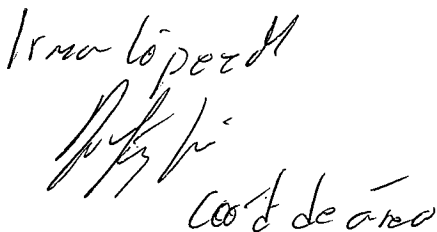 Irma López M
Coord de área